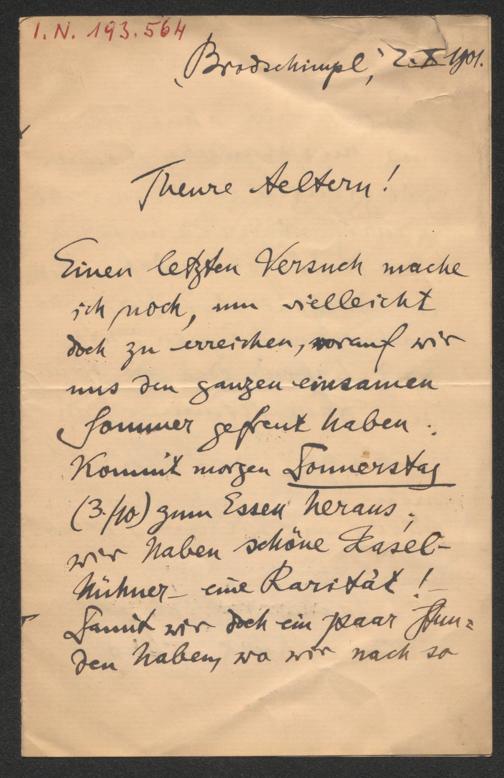 I.N. 193.564
„Brodschimpl“, 2. X 1901.
Theure Aeltern!
Einen letzten Versuch mache
ich noch, um vielleicht
doch zu erreichen, worauf wir
uns den ganzen einsamen
Sommer gefreut haben.
Kommt morgen Donnerstag
(3./10) zum Essen heraus;
wir haben schöne Hasel-
hühner – eine Rarität! –
Damit wir doch ein paar Stun=
den haben, wo wir nach so